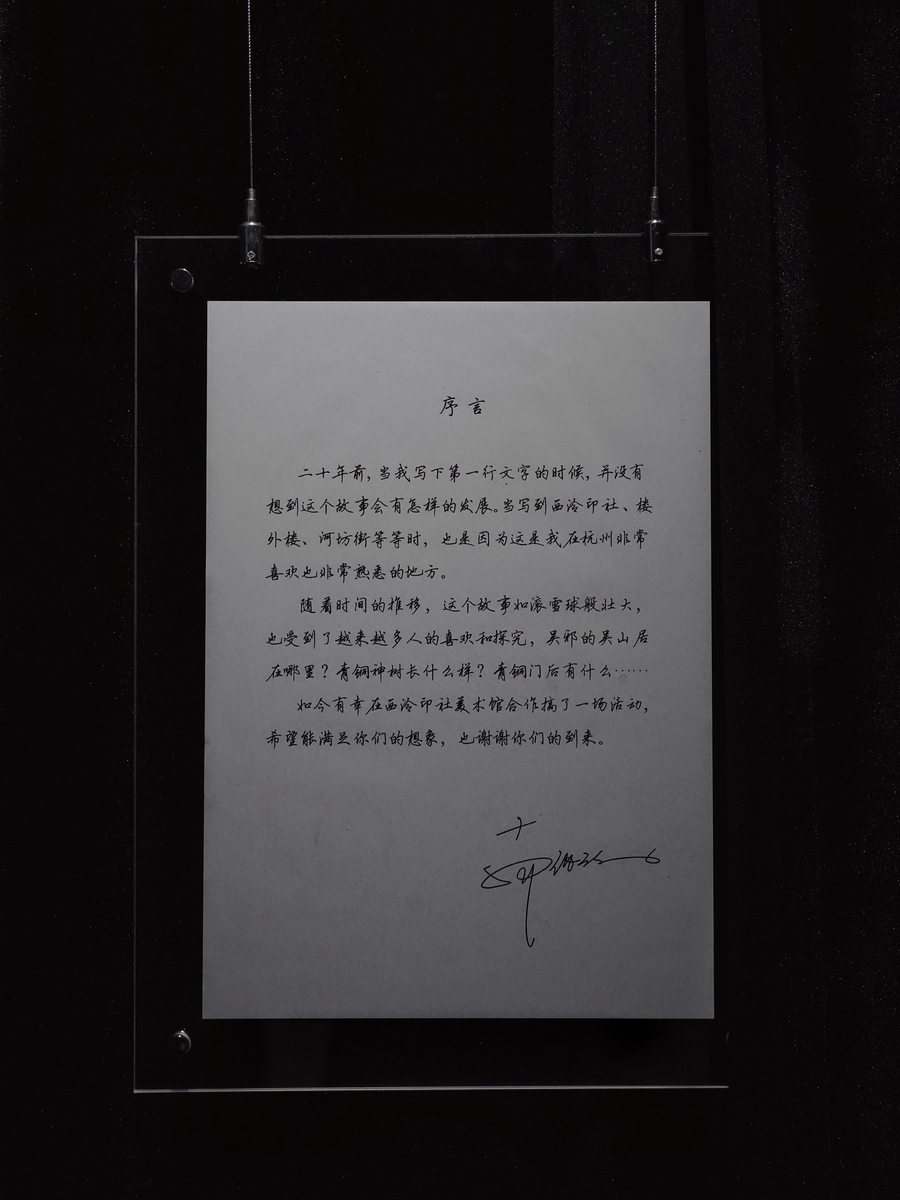 序言
二十年前，当我写下第一行文字的时候，并没有
想到这个故事会有怎样的发展。当写到西泠印社、楼
外楼、河坊街等等时，也是因为这是我在杭州非常
喜欢也非常熟悉的地方。
随着时间的推移，这个故事如滚雪球般壮大，
也受到了越来越多人的喜欢和探究，吴邪的吴山居
在哪里？青铜神树长什么样？青铜门后有什么……
如今有幸在西泠印社美术馆合作搞了一场活动，
希望能满足你们的想象，也谢谢你们的到来。